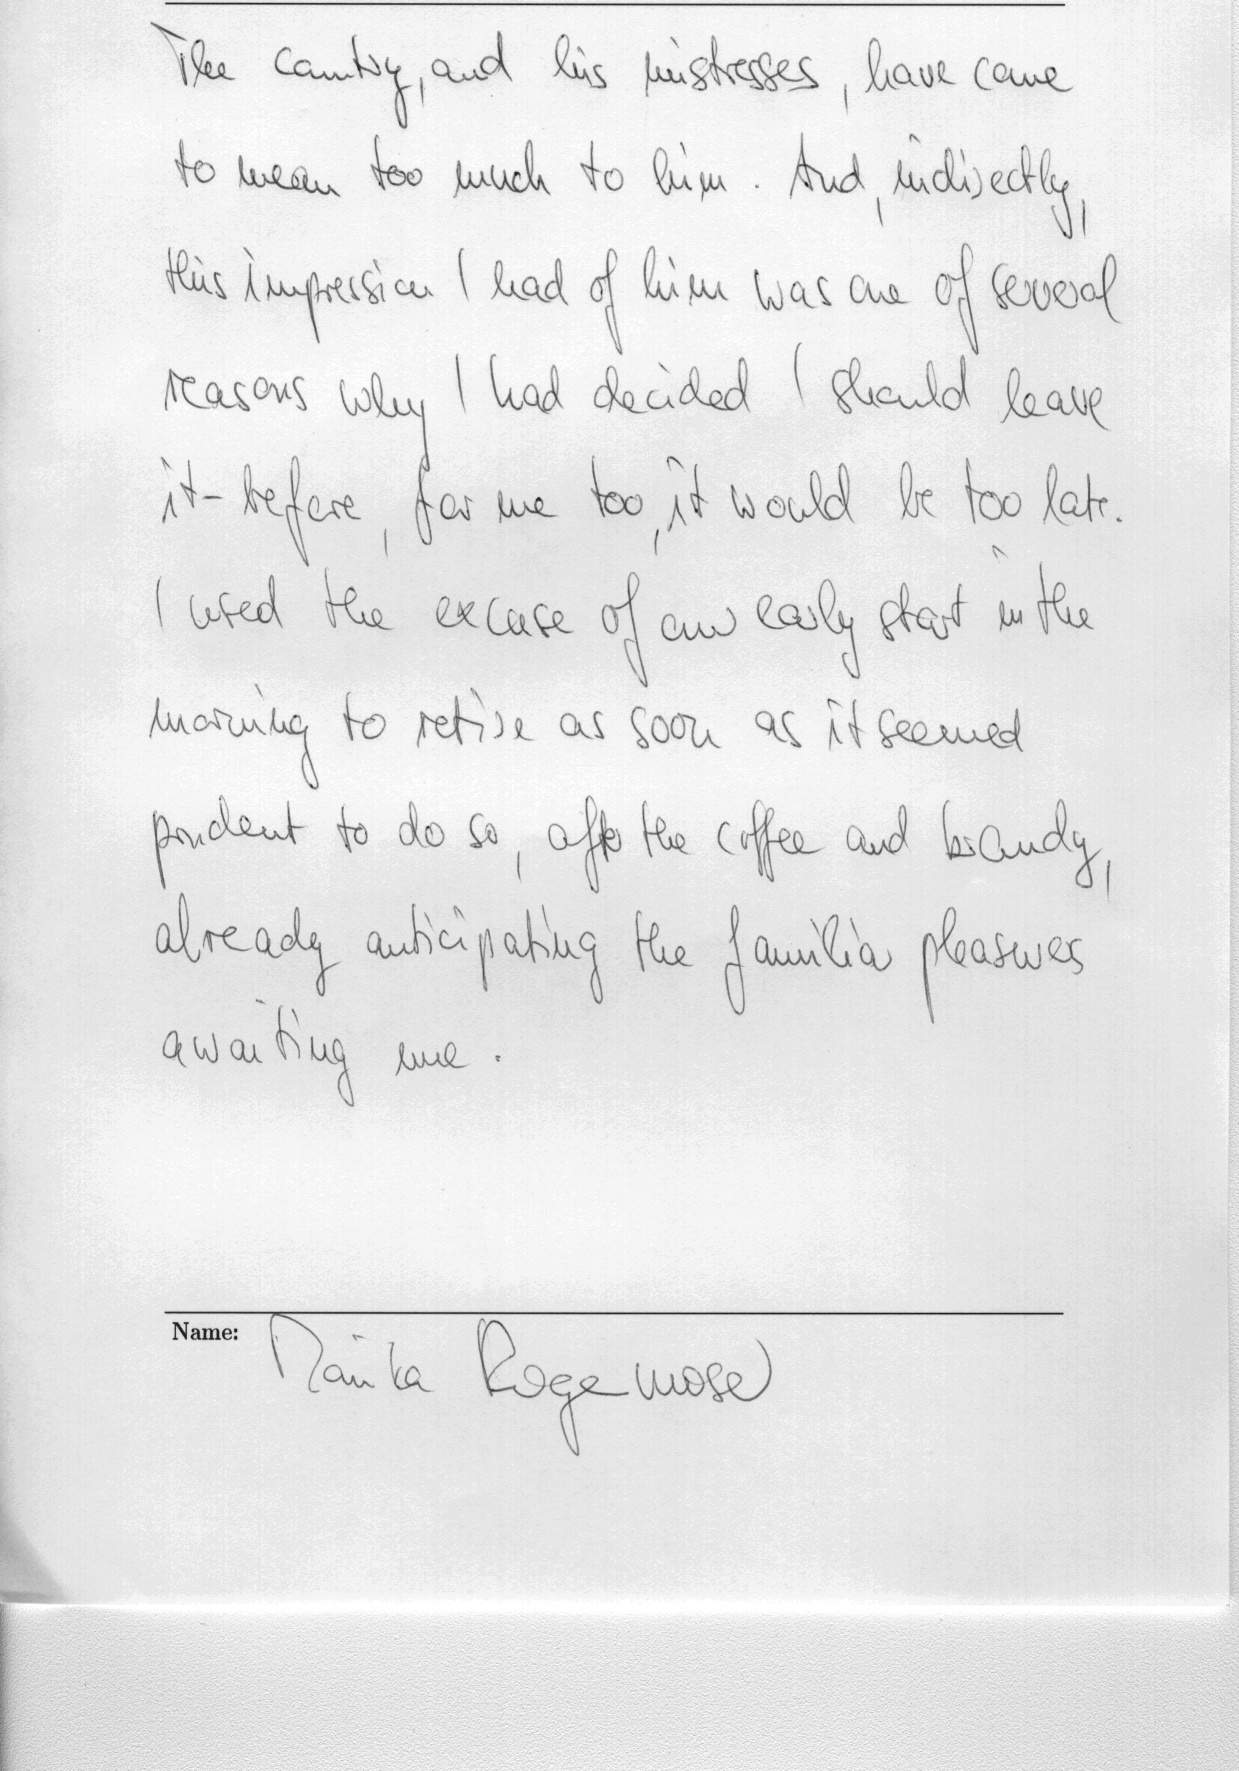 The country, and his mistresses, have come
to mean too much to him. And, indirectly,
this impression I had of him was one of several
reasons why I had decided I should leave
it - before, for me too, it would be too late.
I used the excuse of an early start in the
morning to retire as soon as it seemed
prudent to do so, after the coffee and brandy,
already anticipating the familiar pleasures
awaiting me.
Name: